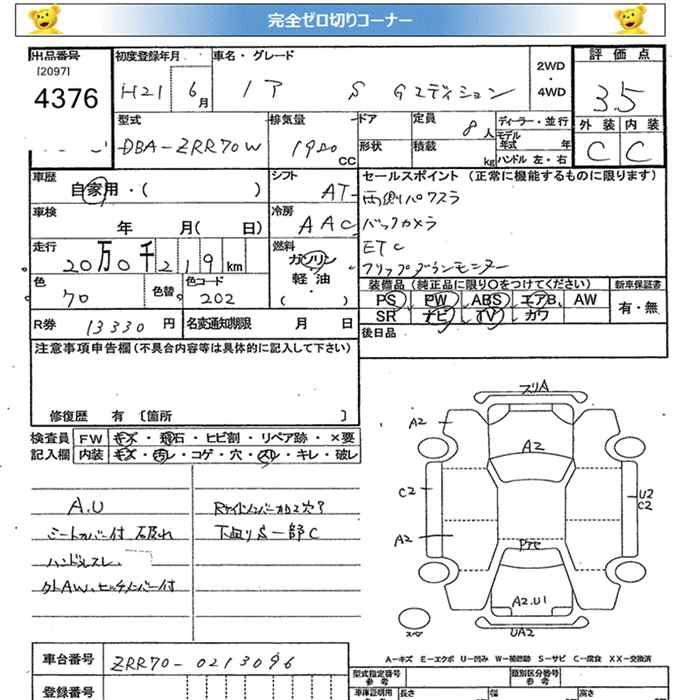 完全ゼロ切りコーナー
出品番号
[2097]
4376
初度登録年月
H21 6月
車名・グレード
S Gエディション
2WD
・
4WD
評価点
3.5
外装 内装
C C
型式
DBA-ZRR70W
排気量
CC
ドア
形状
定員
8人
積載
kg
ディーラー・並行
モデル
年式 年
ハンドル 左・右
車歴
自家用・( )
シフト
AT
車検
年 月( 日)
冷房
AAC
走行
20万0千219km
燃料
ガソリン
・
軽油
( )
色
クロ
色替
色コード
202
R券
13330円
名変通知期限 月 日
セールスポイント (正常に機能するものに限ります)
両側パワスラ
バックカメラ
ETC
フリップダウンモニター
装備品(純正品に限り○をつけてください)
PS PW ABS エアB. AW
SR ナビ TV カワ
新車保証書
有・無
後日品
注意事項申告欄(不具合内容等は具体的に記入して下さい)
修復歴 有 [箇所 ]
検査員
記入欄
FW キズ・飛石・ヒビ割・リペア跡・×要
内装 キズ・汚レ・コゲ・穴・スレ・キレ・破レ
A.U
シートカバー付 破れ
ハンドルスレ.
外AW、ヒッチメンバー付
下回りS一部C
A2
A2
C2
A2
U2
C2
A2.U1
UA2
スペア
A-キズ E-エクボ U-凹み W-補修跡 S-サビ C-腐食 XX-交換済
車台番号
ZRR70-0213096
登録番号
型式指定番号
参考
類別区分番号
参考
車庫証明用
参考
長さ
幅
高さ